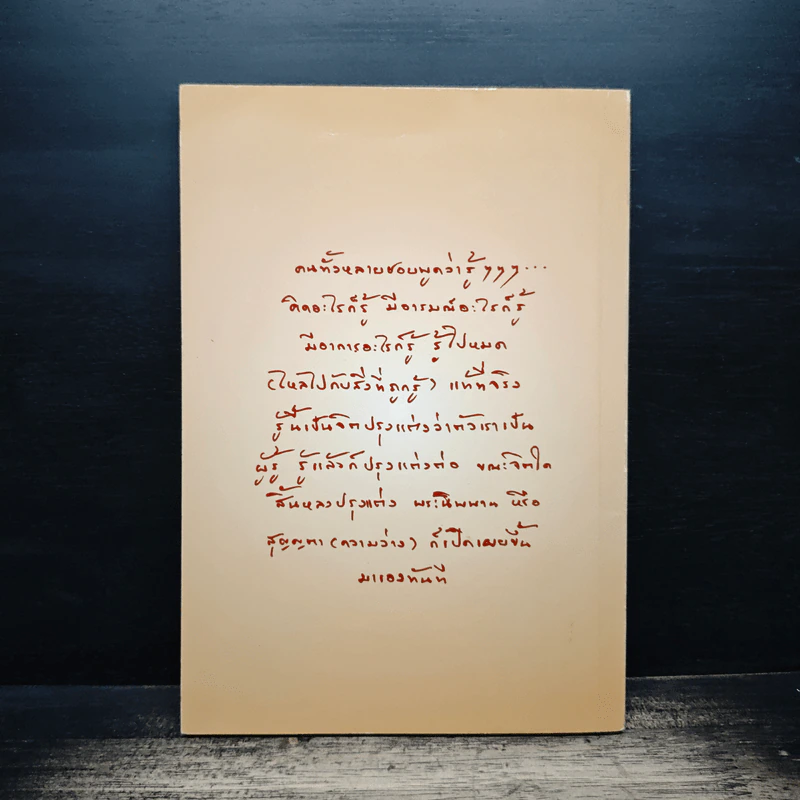 คนทั้งหลายชอบพูดว่ารู้ ๆๆๆ...
คิดอะไรก็รู้ มีอารมณ์อะไรก็รู้
มีอาการอะไรก็รู้ รู้ไปหมด
(ไหลไปกับสิ่งที่ถูกรู้) แท้ที่จริง
รู้นี้เป็นจิตปรุงแต่งว่าตัวเราเป็น
ผู้รู้ รู้แล้วก็ปรุงแต่งต่อ ขณะจิตใด
สิ้นหลงปรุงแต่ง พระนิพพาน หรือ
สุญญตา (ความว่าง) ก็เปิดเผยขึ้น
มาเองทันที